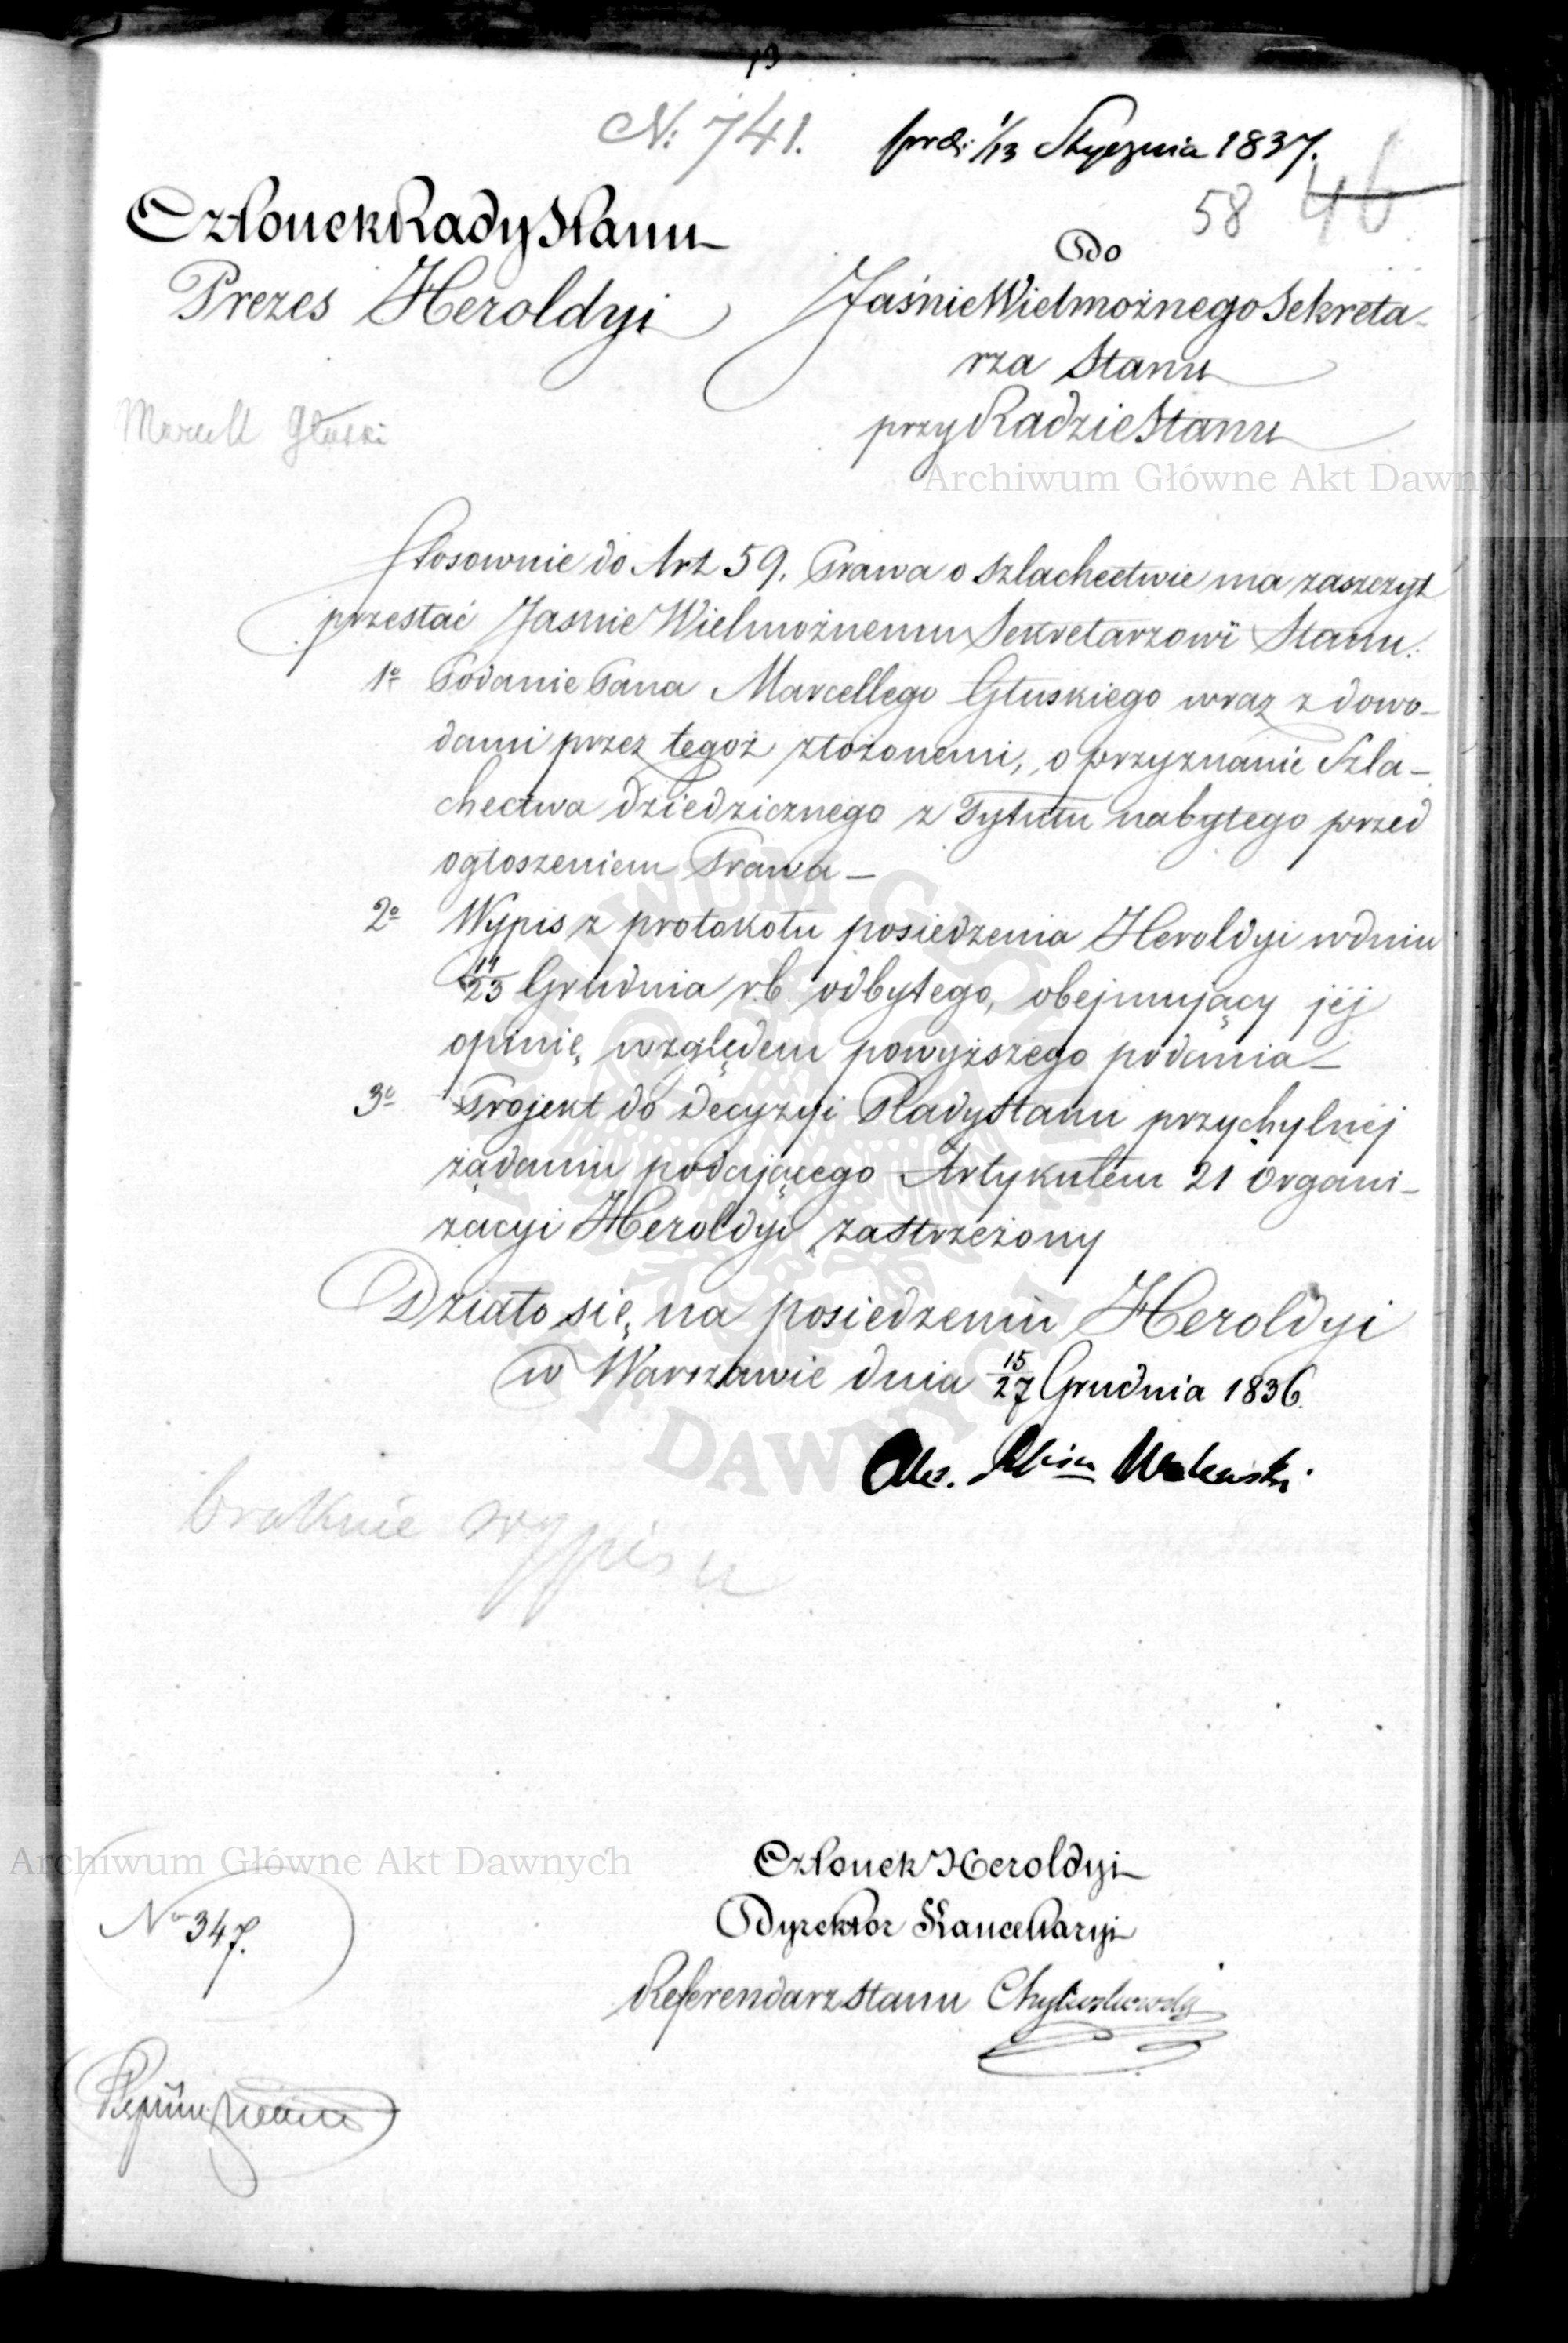 13
N: 741.
prd: 1/13 Stycznia 1837.
58 46
Członek Rady Stanu
Prezes Heroldyi
Do
Jaśnie Wielmożnego Sekreta-
rza Stanu
przy Radzie Stanu
Marcell Głuski
Archiwum Główne Akt Dawnych
Stosownie do Art 59. Prawa o szlachectwie ma zaszczyt
przesłać Jaśnie Wielmożnemu Sekretarzowi Stanu:
1º Podanie Pana Marcellego Głuskiego wraz z dowo-
dami przez tegoż złożonemi, o przyznanie Szla-
chectwa dziedzicznego z Tytułu nabytego przed
ogłoszeniem Prawa —
2º Wypis z protokołu posiedzenia Heroldyi w dniu
11/23 Grudnia rb. odbytego, obejmujący jéj
opinię względem powyższego podania —
3º Projekt do decyzyi Rady Stanu przychylnéj
żądaniu podającego Artykułem 21 Organi-
zacyi Heroldyi zastrzeżony
Działo się na posiedzeniu Heroldyi
w Warszawie dnia 15/27 Grudnia 1836.
Walewski
braknie wypisu
ARCHIWUM GŁÓWNE AKT DAWNYCH
Archiwum Główne Akt Dawnych
Członek Heroldyi
Dyrektor Kancellaryi
Referendarz Stanu
Nº 347.